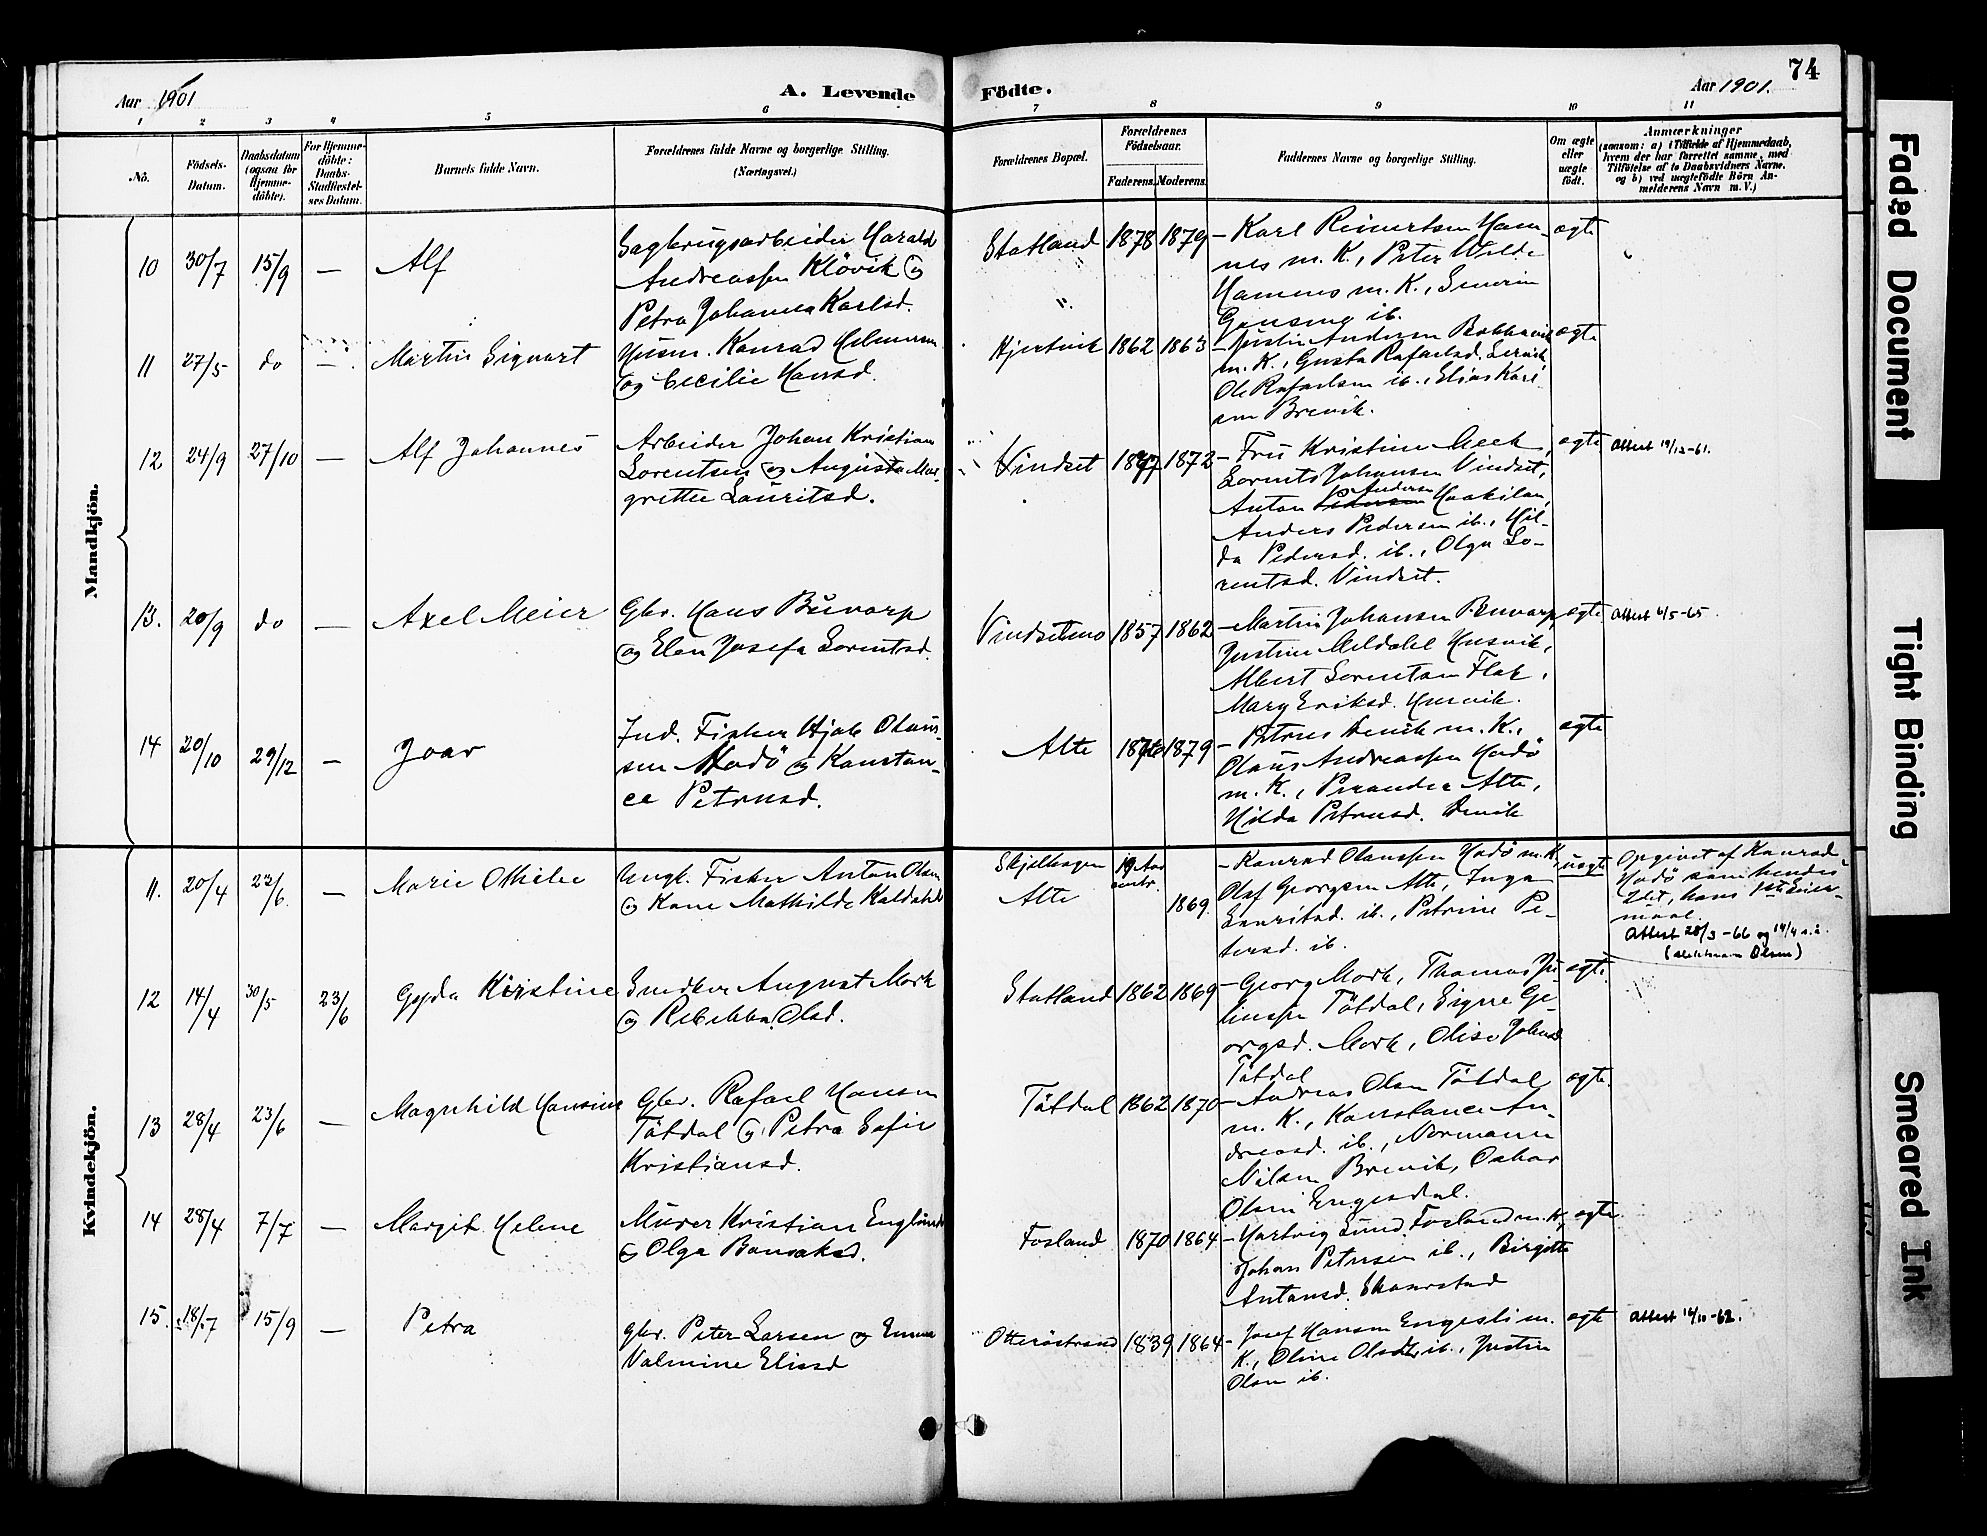 74
Aar 1901
A. Levende
Födte.
Aar 1901.
1 2 3 4 5 6 7 8 9 10 11
No.
Födsels-
Datum.
Daabsdatum
(ogsaa for
Hjemme-
döbte).
For Hjemme-
döbte:
Daabs-
Stadfæstel-
ses Datum.
Barnets fulde Navn.
Forældrenes fulde Navne og borgerlige Stilling.
(Næringsvei.)
Forældrenes Bopæl.
Forældrenes
Födselsaar.
Faderens. Moderens.
Faddernes Navne og borgerlige Stilling.
Om ægte
eller
uægte
födt.
Anmærkninger
(saasom: a) i Tilfælde af Hjemmedaab,
hvem der har forrettet samme, med
Tilföielse af to Daabsvidners Navne,
og b) ved uægtefödte Börn An-
melderens Navn m. V.)
Mandkjön.
10 30/7 15/9 — Alf
Sagbrugsarbeider Harald
Andreassen Klövik og
Petra Johanna Karlsd.
Statland 1878 1879
– Karl Reinertsen Ham-
nes m. K., Peter Wilde
Hamnes m. K., Severin
ib.
ægte
11 27/5 do —. Martin Sigvart
Husm. Konrad
og Cecilie Hansd.
Hjertvik 1862 1863
– Justin Andersen
m. K., Gusta Rafaelsd. Servik
Ole Rafaelsen ib., Elias Karl-
sen Brevik.
ægte
12 24/9 27/10 — Alf Johannes
Arbeider Johan Kristian
Lorentsen og Augusta Mar-
grethe Lauritsd.
Vindset 1877 1872
– Fru Kristine
Lorents Johansen Vindset,
Anton Pedersen Andersen
Anders Pedersen ib., Hil-
da Pedersd. ib., Olga Lo-
rentsd. Vindset.
ægte Attest 19/12-61.
13. 20/9 do — Axel Meier
Gbr. Hans Buvarp
og Elen Josefa Lorentsd.
Vindsetmo 1857 1862
– Martin Johansen Buvarp,
Justine Meldahl Husvik,
Albert Lorentsen Flak,
Mary Eriksd. Husvik.
ægte Attest 4/5-65.
14 20/10 29/12 — Joar
Ind. Fisker Hjalm Olaus-
sen Hadö og Konstan-
ce Petrusd.
Alte 1876 1879
– Petrus Devik m. K.,
Olaus Andreassen Hadö
m. K., Perander Alte,
Hilda Petrusd. Devik
ægte
Kvindekjön.
11. 20/4 23/6. — Marie Othilie
Ungk. Fisker Anton Olsen
og Kane Mathilde Kaldahl
Skjelhagen
Alte
19 Aar
1869.
– Konrad Olaussen Hadö m. K.
Olaf Georgsen Alte, Inga
Lauritsd. ib., Petrine Pe-
tersd. ib.
uægte
Opgivet af Konrad
Hadö som hendes
2det, hans 1ste Leier-
maal.
Attest 28/3-66 og 14/4 s.å.
12 14/4 30/5 23/6 Gyda Kirstine
Snedker August Mork
og Rebekka Olsd.
Statland 1862 1869
– Georg Mork, Thomas Ju-
liussen Tötdal, Signe Ge-
orgsd. Mork, Olise Johnsd
Tötdal
ægte
13 28/4 23/6 — Magnhild Hansine
Gbr. Rafael Hansen
Tötdal og Petra Sofie
Kristiansd.
Tötdal 1862 1870
– Andreas Olsen Tötdal
m. K., Konstance An-
dreasd. ib., Normann
Nilsen Brevik, Oskar
Olsen Engesdal.
ægte.
14 28/4 7/7 — Margit Helene
Murer Kristian Englund
og Olga Bonsaksd.
Fosland 1870 1864
– Hartvig Lund Fosland m. K,
Johan Petersen ib., Birgitte
Antonsd. Skaarstad
ægte
15. 18/7 15/9 — Petra
Gbr. Peter Larsen og Emma
Valmine Elisd
Otteröstrand 1839 1864
– Josef Hansen Engesli m.
K., Oline Olsdtr ib., Justin
Olsen ib.
ægte Attest 14/11-62.
Faded Document
Tight Binding
Smeared Ink